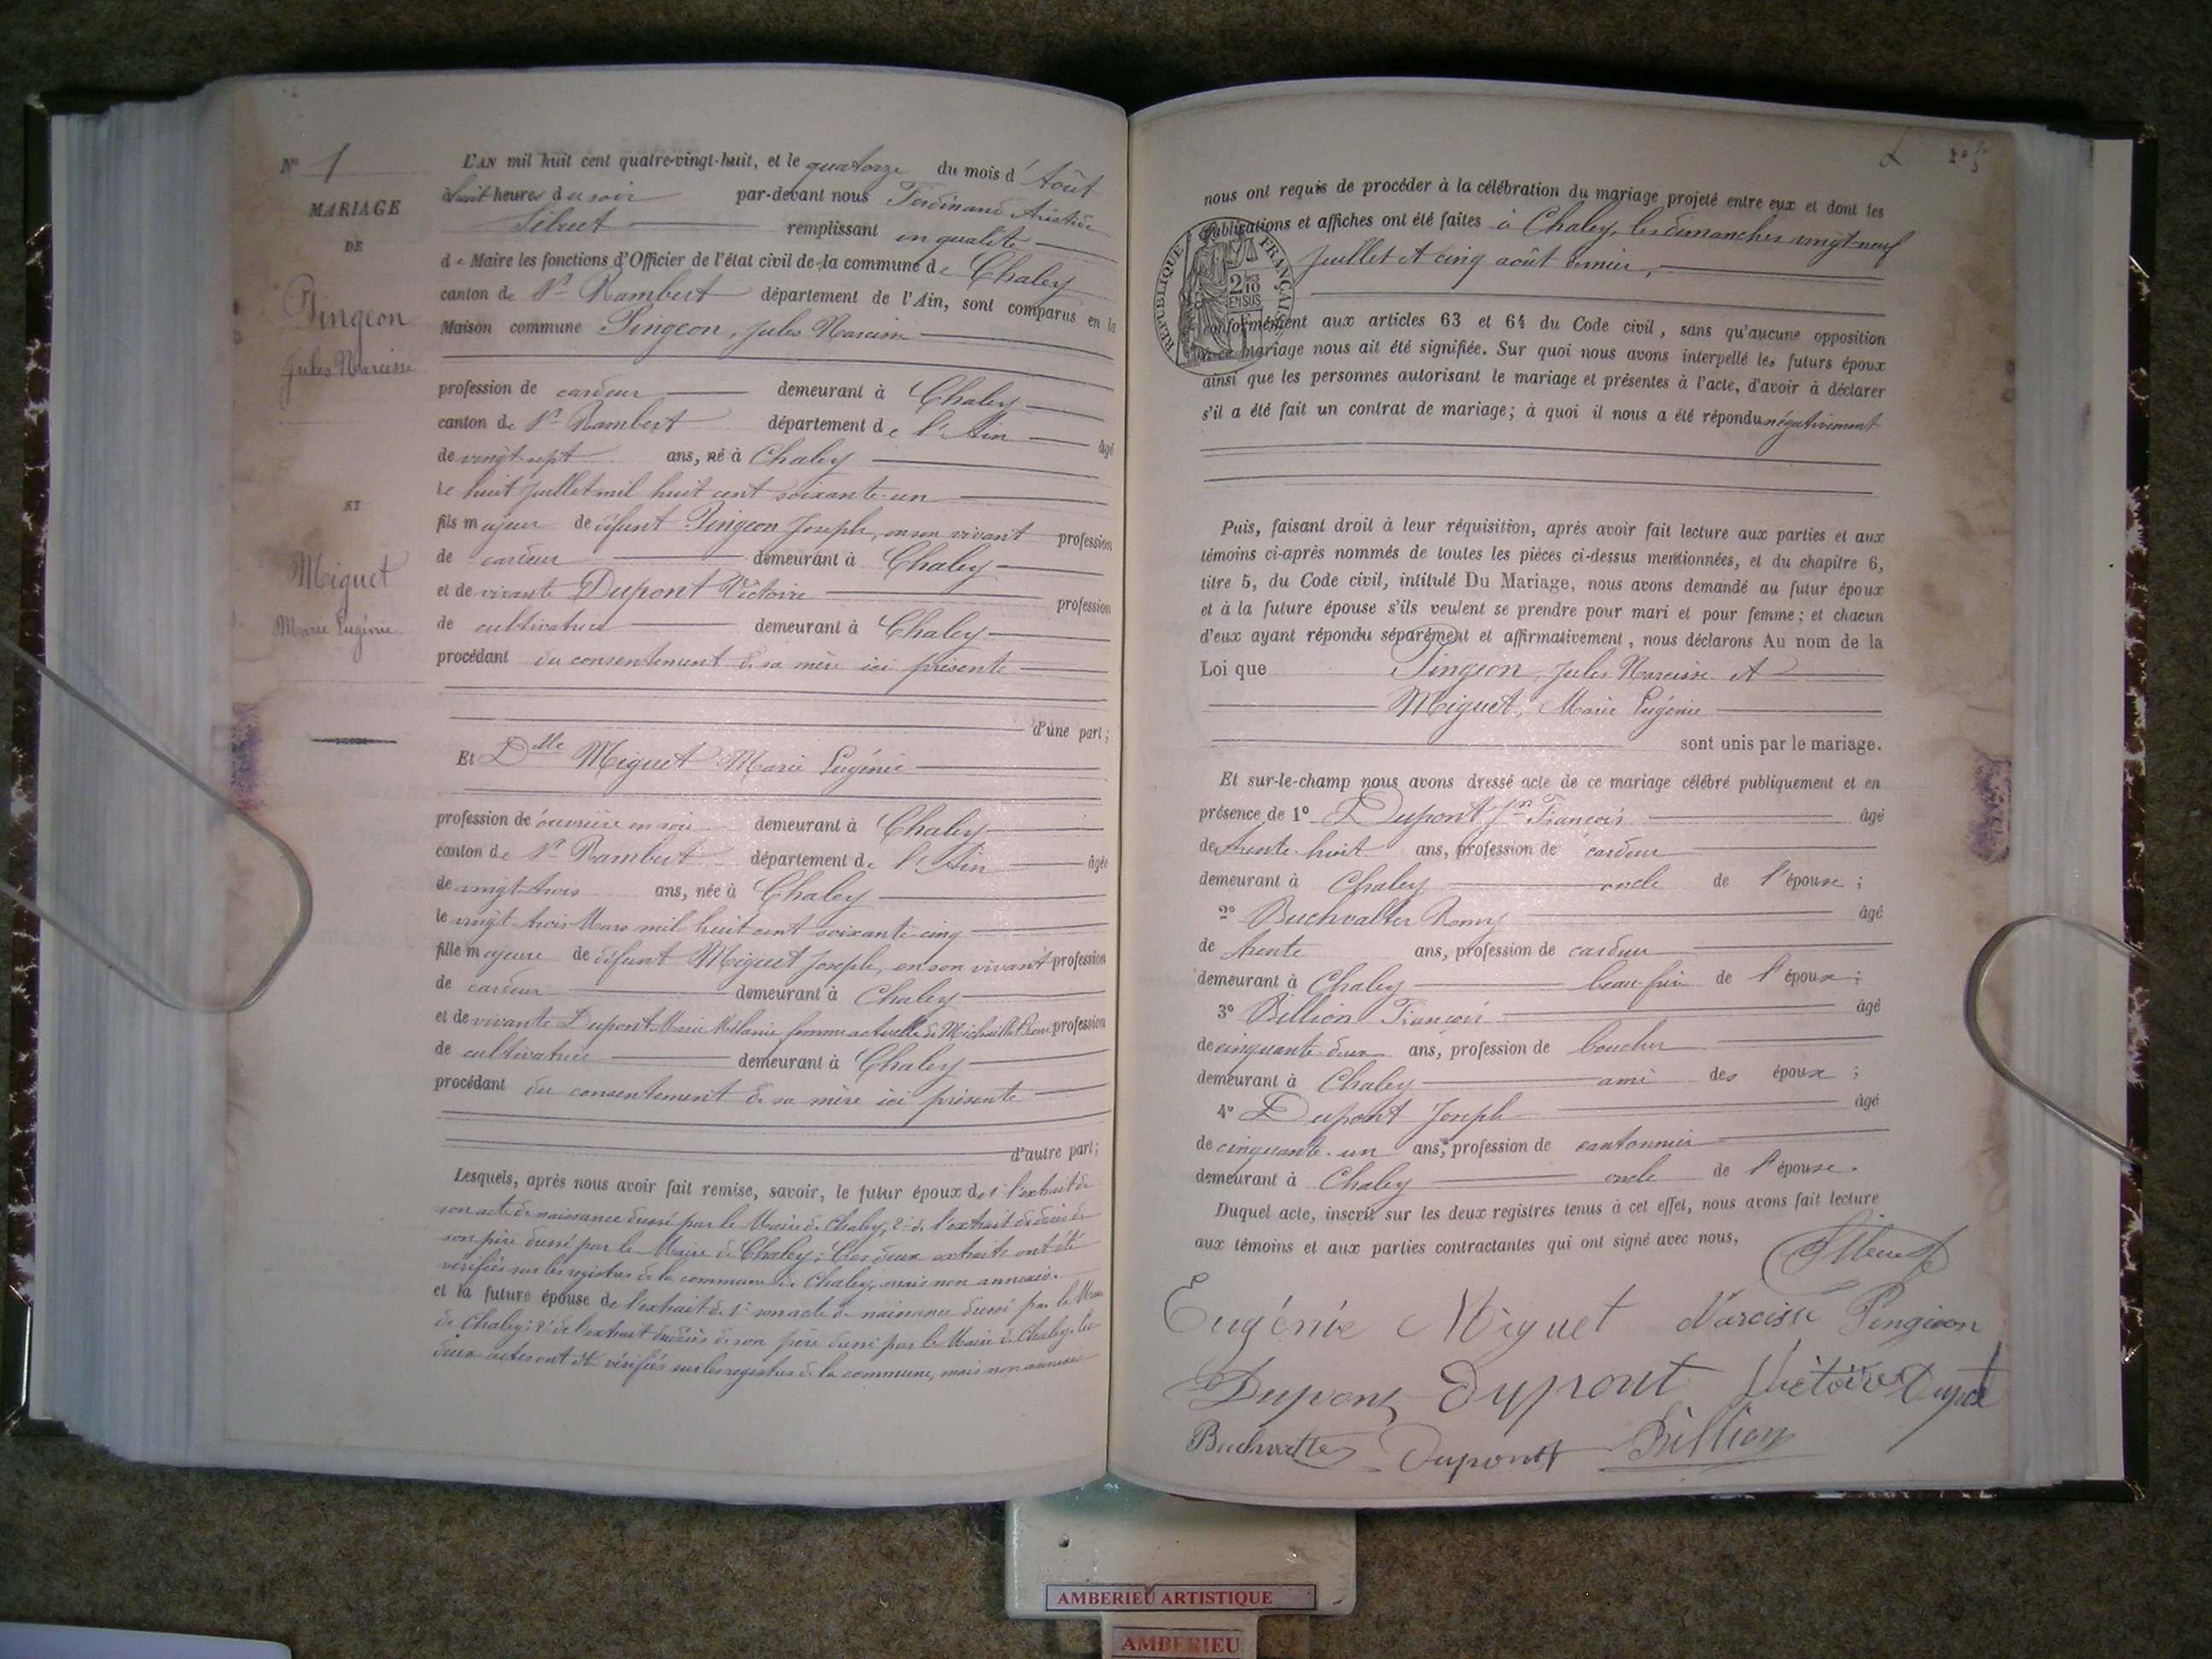 N° 1
MARIAGE
DE
Pingeon
Jules Narcisse
ET
Miguet
Marie Eugénie
L'AN mil huit cent quatre-vingt-huit, et le quatorze du mois d'Août
à huit heures du soir par-devant nous Ferdinand Aristide
remplissant en qualité
de Maire les fonctions d'Officier de l'état civil de la commune de Chaley
canton de St Rambert département de l'Ain, sont comparus en la
Maison commune Pingeon, Jules Narcisse
profession de cardeur demeurant à Chaley
canton de St Rambert département de l'Ain âgé
de vingt-sept ans, né à Chaley
le huit Juillet mil huit cent soixante-un
fils majeur de défunt Pingeon Joseph, en son vivant profession
de cardeur demeurant à Chaley
et de vivante Dupont Victoire profession
de cultivatrice demeurant à Chaley
procédant du consentement de sa mère ici présente
d'une part;
Et Dlle Miguet Marie Eugénie
profession de ouvrière en soie demeurant à Chaley
canton de St Rambert département de l'Ain âgée
de vingt-trois ans, née à Chaley
le vingt trois Mars mil huit cent soixante-cinq
fille majeure de défunt Miguet Joseph, en son vivant profession
de cardeur demeurant à Chaley
et de vivante Dupont Marie Mélanie femme actuelle de profession
de cultivatrice demeurant à Chaley
procédant du consentement de sa mère ici présente
d'autre part;
Lesquels, après nous avoir fait remise, savoir, le futur époux de 1° l'extrait de
son acte de naissance dressé par le Maire de Chaley, 2° de l'extrait de décès de
son père dressé par le Maire de Chaley; Ces deux extraits ont été
vérifiés sur les registres de la commune de Chaley, mais non annexés.
et la future épouse de l'extrait de 1° son acte de naissance dressé par le Maire
de Chaley; 2° de l'extrait de décès de son père dressé par le Maire de Chaley. les
deux actes ont été vérifiés sur les registres de la commune, mais non annexés
nous ont requis de procéder à la célébration du mariage projeté entre eux et dont les
publications et affiches ont été faites à Chaley, les dimanches vingt-neuf
Juillet et cinq août dernier,
RÉPUBLIQUE FRANÇAISE
2/10
EN SUS
conformément aux articles 63 et 64 du Code civil, sans qu'aucune opposition
à ce mariage nous ait été signifiée. Sur quoi nous avons interpellé les futurs époux
ainsi que les personnes autorisant le mariage et présentes à l'acte, d'avoir à déclarer
s'il a été fait un contrat de mariage; à quoi il nous a été répondu négativement
Puis, faisant droit à leur réquisition, après avoir fait lecture aux parties et aux
témoins ci-après nommés de toutes les pièces ci-dessus mentionnées, et du chapitre 6,
titre 5, du Code civil, intitulé Du Mariage, nous avons demandé au futur époux
et à la future épouse s'ils veulent se prendre pour mari et pour femme; et chacun
d'eux ayant répondu séparément et affirmativement, nous déclarons Au nom de la
Loi que Pingeon, Jules Narcisse et
Miguet, Marie Eugénie
sont unis par le mariage.
Et sur-le-champ nous avons dressé acte de ce mariage célébré publiquement et en
présence de 1° Dupont Jn François âgé
de trente-huit ans, profession de cardeur
demeurant à Chaley oncle de l'épouse;
2° Buchvalter Remy âgé
de trente ans, profession de cardeur
demeurant à Chaley beau-frère de l'époux;
3° Billion François âgé
de cinquante-deux ans, profession de boucher
demeurant à Chaley ami des époux;
4° Dupont Joseph âgé
de cinquante-un ans, profession de cantonnier
demeurant à Chaley oncle de l'épouse.
Duquel acte, inscrit sur les deux registres tenus à cet effet, nous avons fait lecture
aux témoins et aux parties contractantes qui ont signé avec nous,
Eugénie Miguet Narcisse Pingeon
Dupont Dupont Victoire Dupont
Dupont Billion
AMBERIEU ARTISTIQUE
AMBERIEU